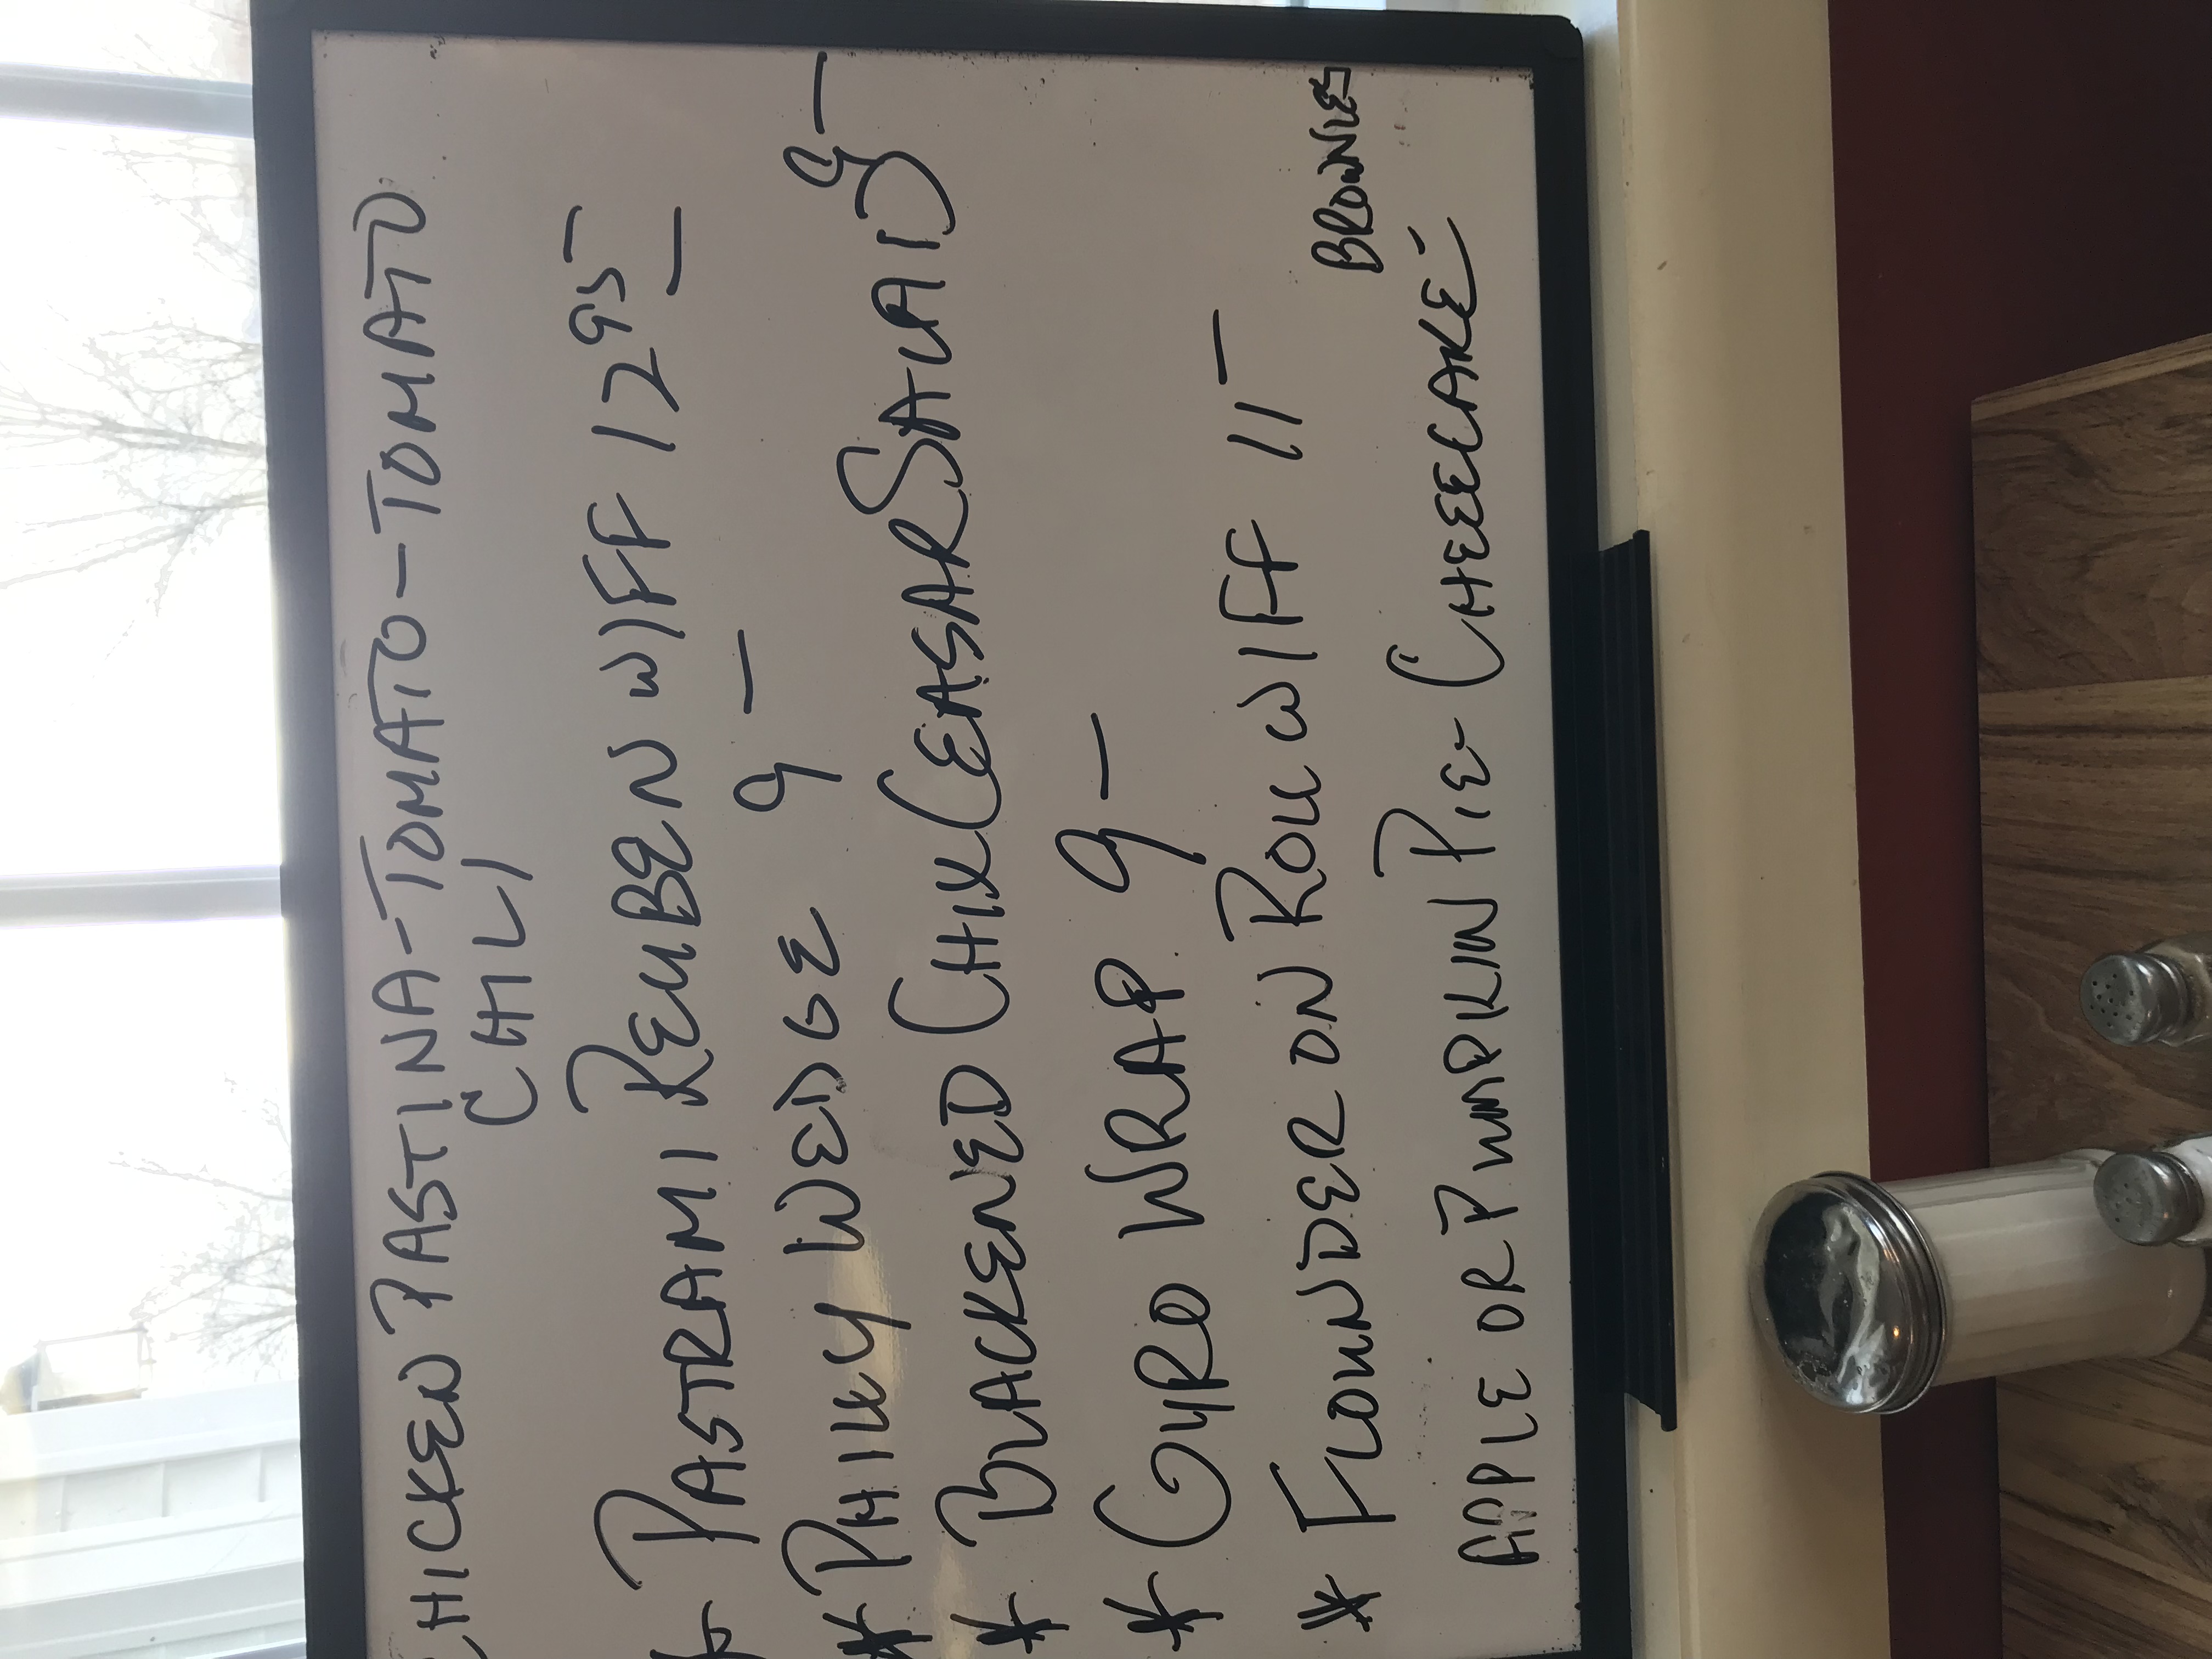 CHICKEN PASTINA-TOMATO-TOMATO
CHILI
* PASTRAMI REUBEN W/FF 12 95
* PHILLY WEDGE 9 —
* BLACKENED CHIX CEASAR SALAD 9 —
* GYRO WRAP 9 —
* FLOUNDER ON ROLL W/FF 11 —
BROWNIE
APPLE OR PUMPKIN PIE - CHEEECAKE -